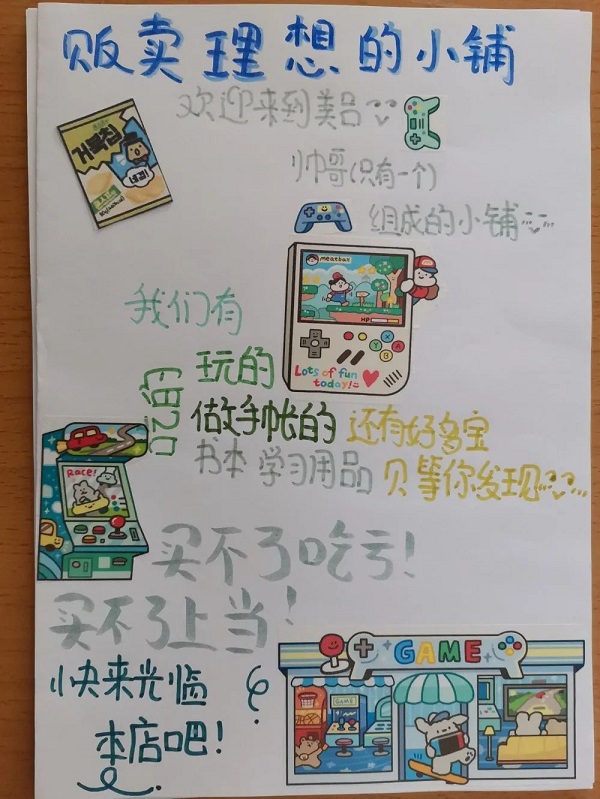 贩卖理想的小铺
欢迎来到美吕
帅哥(只有一个)
组成的小铺
거북칩
meatball
HP:
X
Y
A
B
Lots of fun
today!
我们有
吃的
玩的
做手帐的
书本 学习用品
还有好多宝
贝等你发现
Race!
买不了吃亏!
买不了上当!
快来光临
本店吧!
GAME
GAME